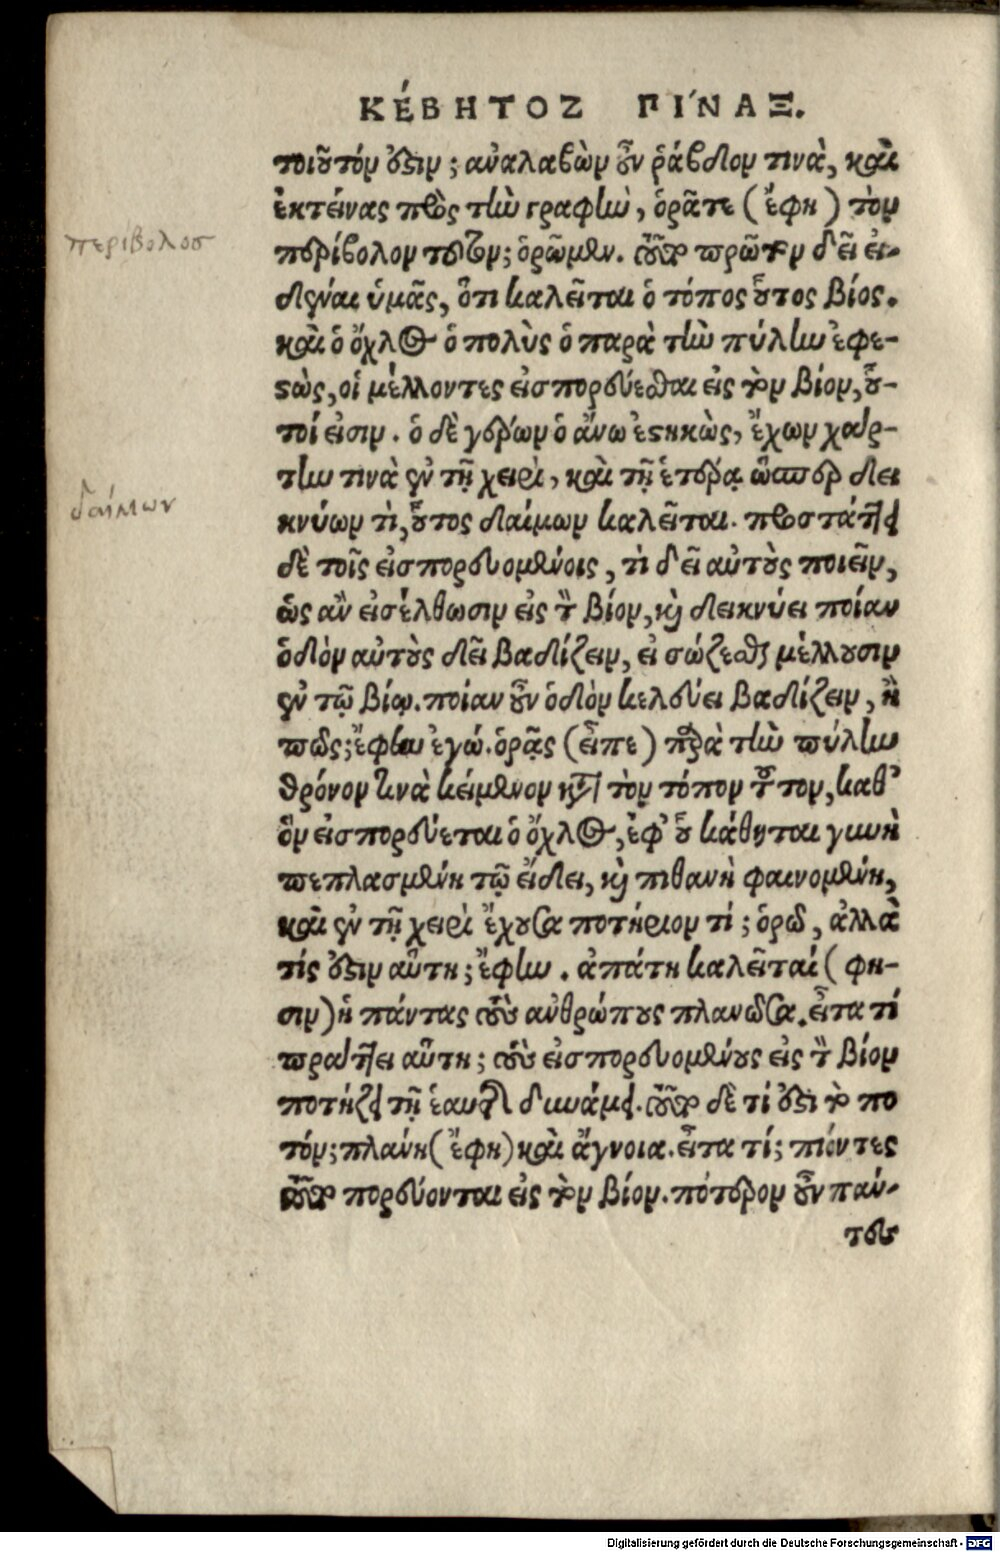 ΚΈΒΗΤΟΣ ΠΊΝΑΞ.
τοιοῦτόν ἐστιν; ἀναλαβὼν οὖν ῥάβδον τινὰ, καὶ
ἐκτείνας πρὸς τὴν γραφὴν, ὁρᾶτε (ἔφη) τὸν
περίβολον τοῦτον; ὁρῶμεν. τοῦτο πρῶτον δεῖ εἰ-
δέναι ὑμᾶς, ὅτι καλεῖται ὁ τόπος οὗτος βίος.
καὶ ὁ ὄχλος ὁ πολὺς ὁ παρὰ τὴν πύλην ἐφε-
στὼς, οἱ μέλλοντες εἰσπορεύεσθαι εἰς τὸν βίον, οὗ-
τοί εἰσιν. ὁ δὲ γέρων ὁ ἄνω ἑστηκὼς, ἔχων χάρ-
την τινὰ ἐν τῇ χειρὶ, καὶ τῇ ἑτέρᾳ ὥσπερ δει
κνύων τὶ, οὗτος δαίμων καλεῖται. προστάττει
δὲ τοῖς εἰσπορευομένοις, τὶ δεῖ αὐτοὺς ποιεῖν,
ὡς ἂν εἰσέλθωσιν εἰς τὸν βίον, καὶ δεικνύει ποίαν
ὁδὸν αὐτοὺς δεῖ βαδίζειν, εἰ σώζεσθαι μέλλουσιν
ἐν τῷ βίῳ. ποίαν οὖν ὁδὸν κελεύει βαδίζειν, ἢ
πῶς; ἔφην ἐγώ. ὁρᾷς (εἶπε) παρὰ τὴν πύλην
θρόνον τινὰ κείμενον κατὰ τὸν τόπον τοῦτον, καθ’
ὃν εἰσπορεύεται ὁ ὄχλος, ἐφ’ οὗ κάθηται γυνὴ
πεπλασμένη τῷ εἴδει, καὶ πιθανὴ φαινομένη,
καὶ ἐν τῇ χειρὶ ἔχουσα ποτήριον τί; ὁρῶ, ἀλλὰ
τίς ἐστιν αὕτη; ἔφην. ἀπάτη καλεῖται (φη-
σιν) ἡ πάντας τοὺς ἀνθρώπους πλανῶσα. εἶτα τί
πράττει αὕτη; τοὺς εἰσπορευομένους εἰς τὸν βίον
ποτίζει τῇ ἑαυτῆς δυνάμει. τοῦτο δὲ τί ἐστι τὸ πο
τόν; πλάνη (ἔφη) καὶ ἄγνοια. εἶτα τί; πιόντες
τοῦτο πορεύονται εἰς τὸν βίον. πότερον οὖν πάν-
τες
περίβολοσ
δαίμων
Digitalisierung gefördert durch die Deutsche Forschungsgemeinschaft - DFG